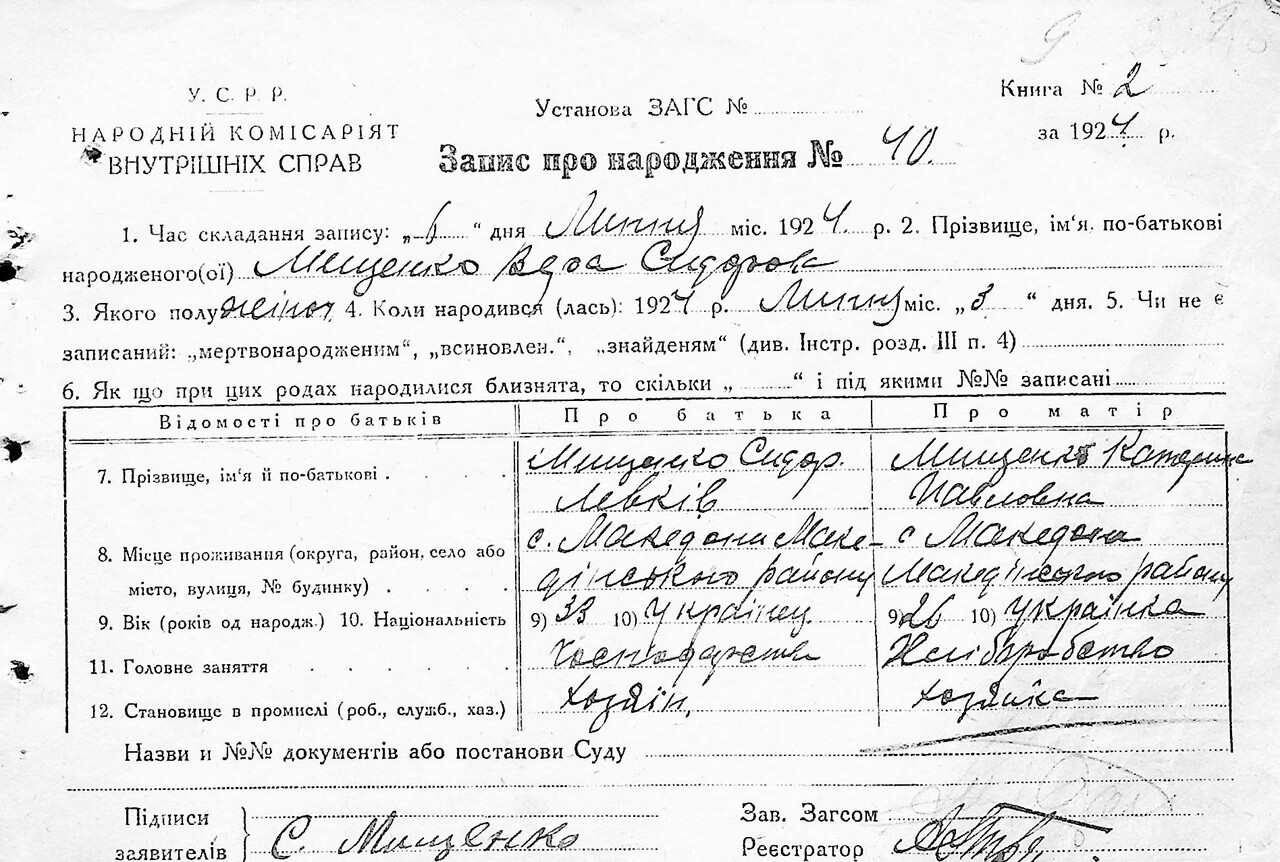 У. С. Р. Р.
НАРОДНІЙ КОМІСАРІЯТ
ВНУТРІШНІХ СПРАВ
Установа ЗАГС №
Книга № 2
за 1924 р.
Запис про народження № 40.
1. Час складання запису: „6“ дня Липня міс. 1924. р. 2. Прізвище, ім‘я. по-батькові
народженого(ої) Мищенко Вера Сидоров
3. Якого полу жіноч 4. Коли народився (лась): 1924 р. Липня міс. „3“ дня. 5. Чи не є
записаний: „мертвонародженим“, „всиновлен.“, „знайденям“ (див. Інстр. розд. III п. 4)
6. Як що при цих родах народилися близнята, то скільки „ “ і під якими №№ записані
Відомості про батьків Про батька Про матір
7. Прізвище, ім‘я й по-батькові Мищенко Сидор. Мищенко Катерина
Левків Павловна
8. Місце проживання (округа, район, село або с. Македони Маке- с Македона
місто, вулиця, № будинку) дінського району Македінского району
9. Вік (років од народж.) 10. Національність 9) 33 10) Українец 9) 26 10) Українка
11. Головне заняття Господарства Хліборобство
12. Становище в промислі (роб., служб., хаз.) хозяін, хозяйка
Назви и №№ документів або постанови Суду
Підписи
заявителів С. Мищенко
Зав. Загсом
Реєстратор